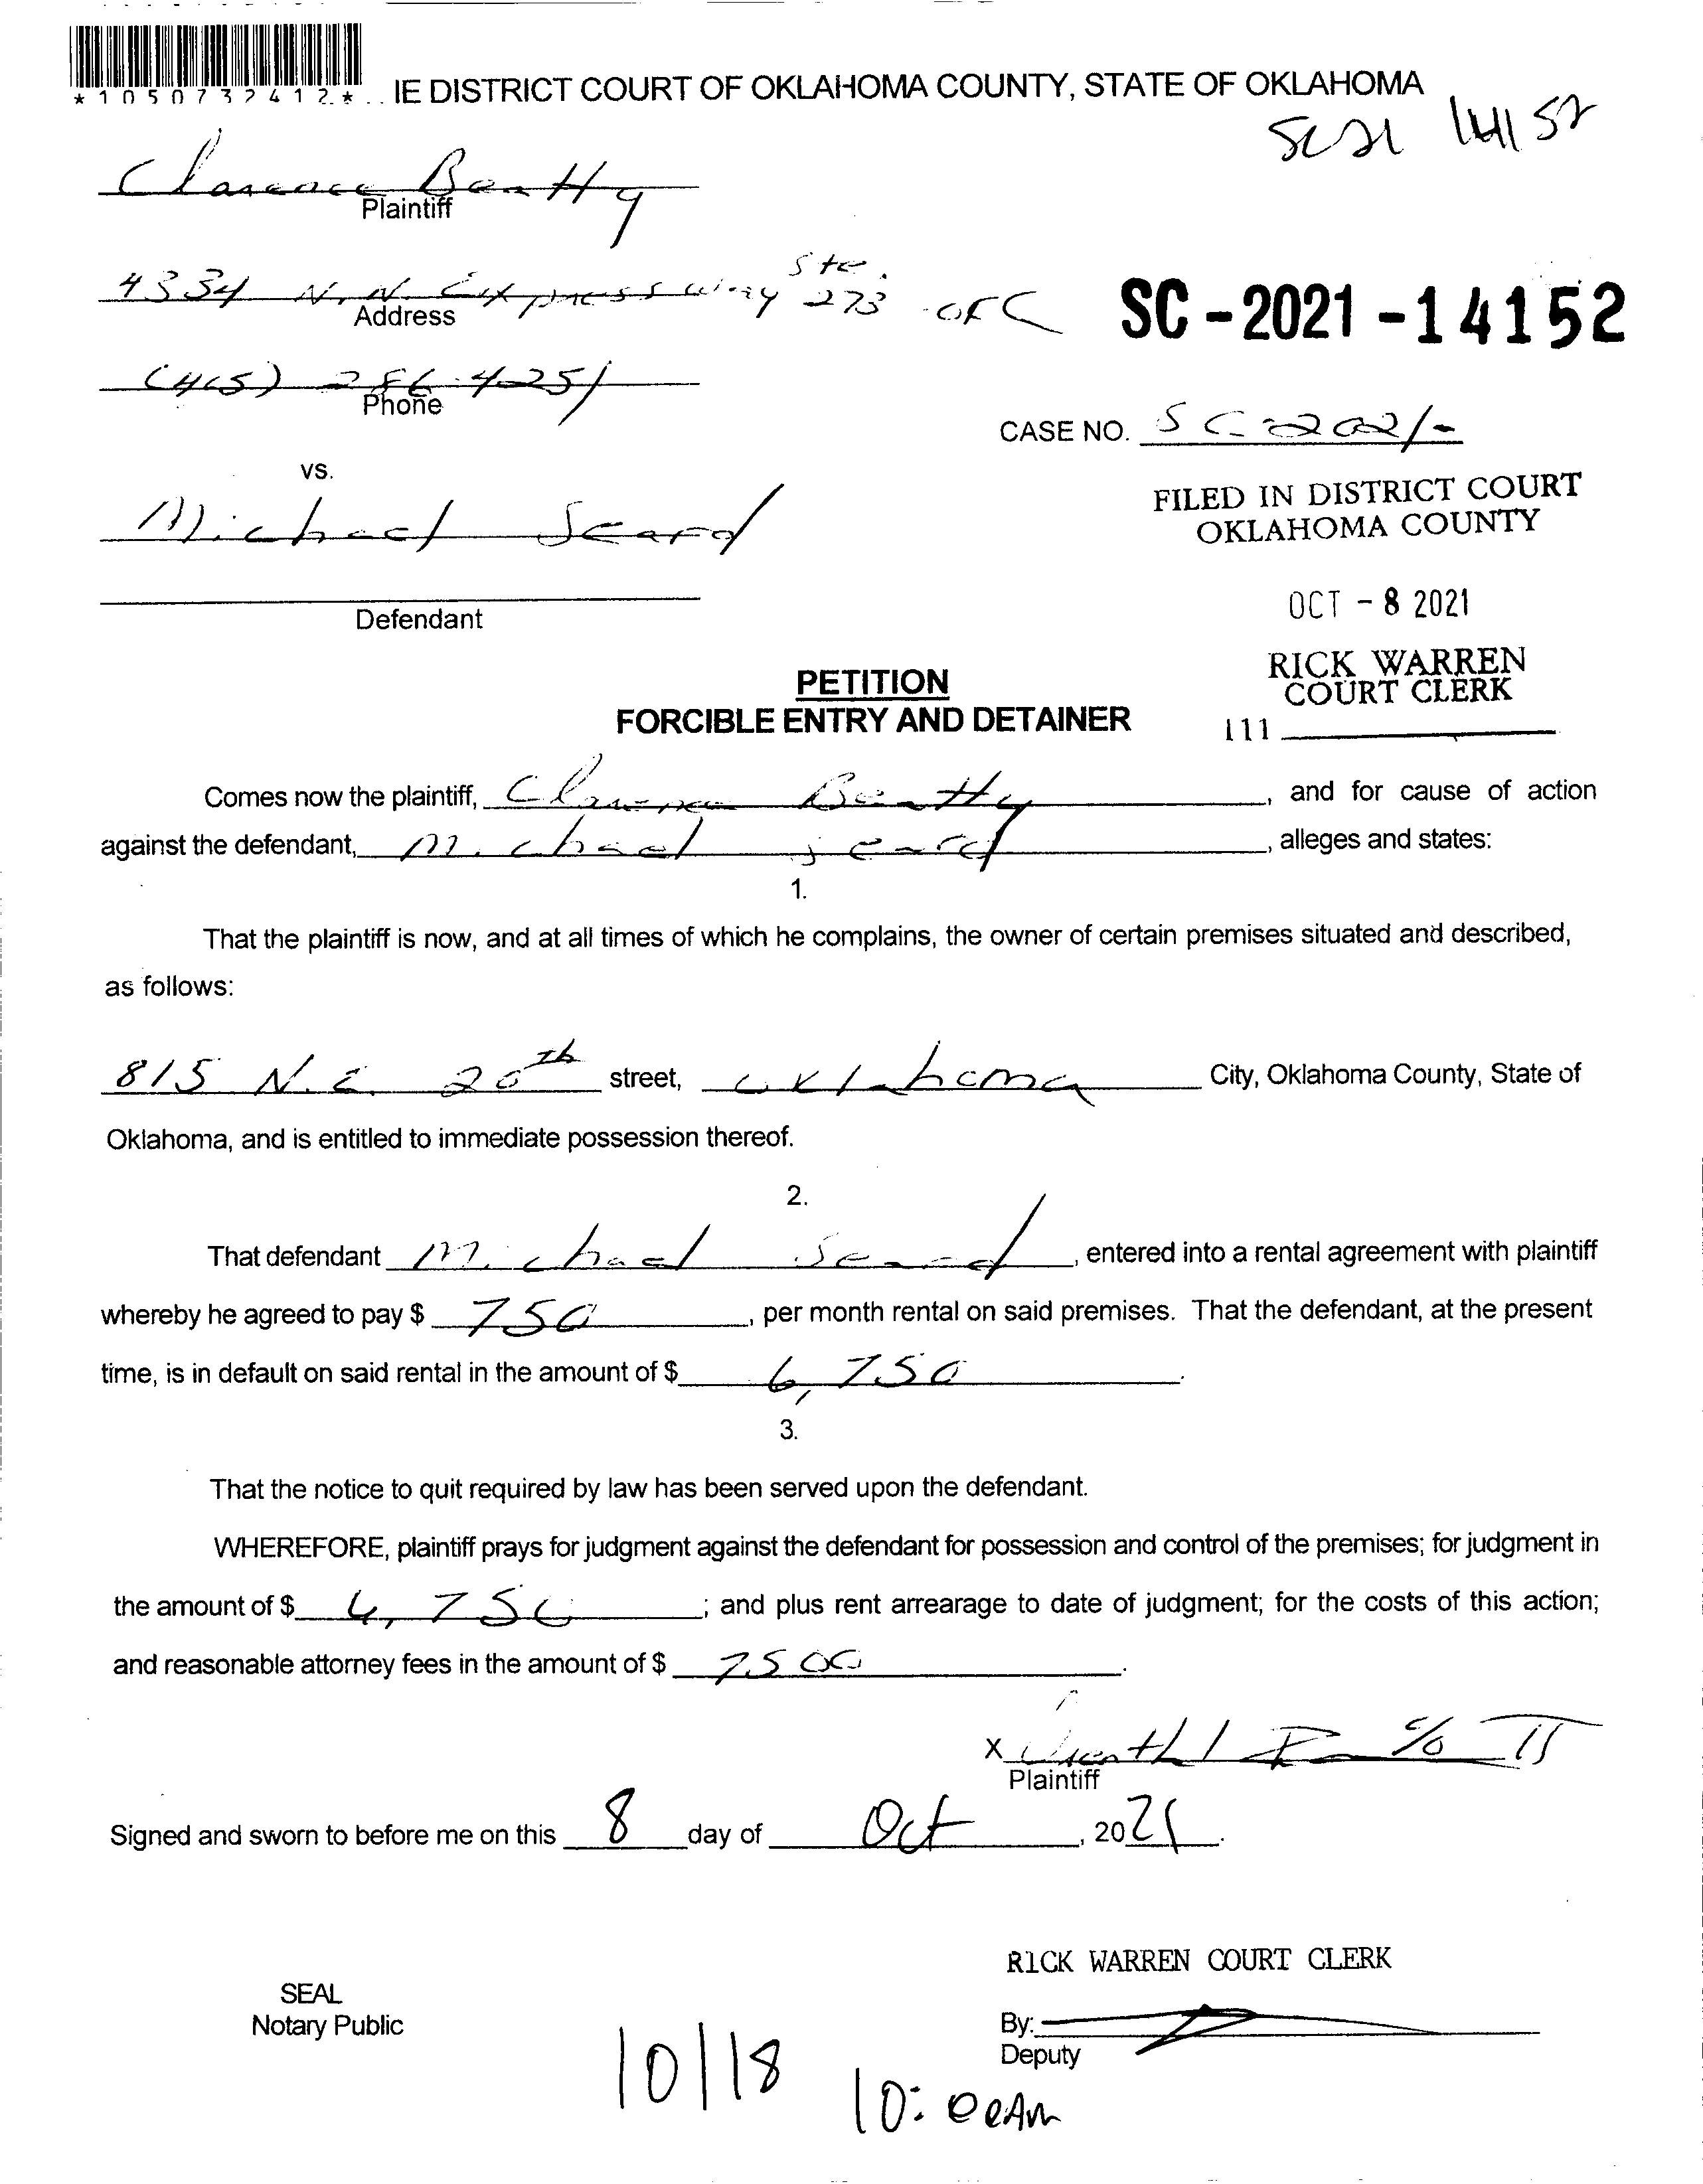 *1050732412*
IE DISTRICT COURT OF OKLAHOMA COUNTY, STATE OF OKLAHOMA
SC21 14152
Clarence Beatty
Plaintiff
4334 N.W. Expressway Ste. 273 OKC
Address
SC-2021-14152
(405) 286-4251
Phone
CASE NO. SC-2021-
vs.
FILED IN DISTRICT COURT
OKLAHOMA COUNTY
Michael Seard
OCT - 8 2021
Defendant
RICK WARREN
COURT CLERK
111
PETITION
FORCIBLE ENTRY AND DETAINER
Comes now the plaintiff, Clarence Beatty, and for cause of action
against the defendant, Michael Seard, alleges and states:
1.
That the plaintiff is now, and at all times of which he complains, the owner of certain premises situated and described,
as follows:
815 N.E. 20th street, Oklahoma City, Oklahoma County, State of
Oklahoma, and is entitled to immediate possession thereof.
2.
That defendant Michael Seard, entered into a rental agreement with plaintiff
whereby he agreed to pay $ 750, per month rental on said premises. That the defendant, at the present
time, is in default on said rental in the amount of $ 6,750.
3.
That the notice to quit required by law has been served upon the defendant.
WHEREFORE, plaintiff prays for judgment against the defendant for possession and control of the premises; for judgment in
the amount of $ 6,750; and plus rent arrearage to date of judgment; for the costs of this action;
and reasonable attorney fees in the amount of $ 7500.
X
Plaintiff
Signed and sworn to before me on this 8 day of Oct, 2021.
RICK WARREN COURT CLERK
SEAL
Notary Public
By:
Deputy
10/18
10:00AM